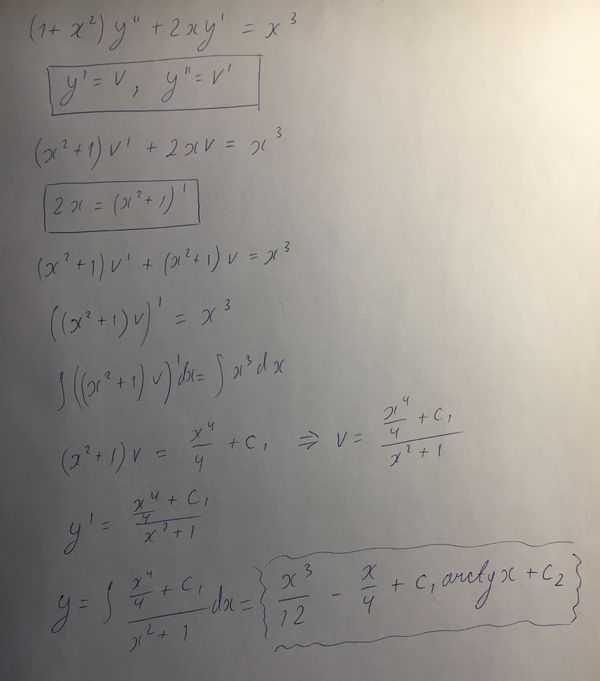 (1+ x²) y" + 2xy' = x³
y' = v, y" = v'
(x²+1) v' + 2xv = x³
2x = (x²+1)'
(x²+1) v' + (x²+1) v = x³
((x²+1) v)' = x³
∫((x²+1) v)'dx = ∫x³dx
(x²+1)v = x⁴/4 + C₁ ⇒ v = (x⁴/4 + C₁)/(x²+1)
y' = (x⁴/4 + C₁)/(x²+1)
y = ∫ (x⁴/4 + C₁)/(x²+1) dx = { x³/12 - x/4 + C₁ arctg x + C₂ }